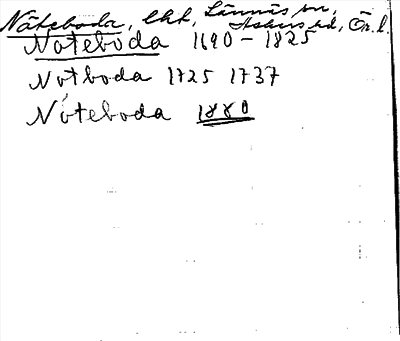 Näteboda, ekt, Lännäs sn,
Askers hd, Ör. l.
Noteboda 1690-1825
Notboda 1725 1737
Nóteboda 1880